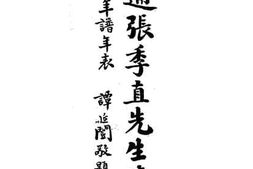 通張季直先生
年譜年表 譚延闓敬題